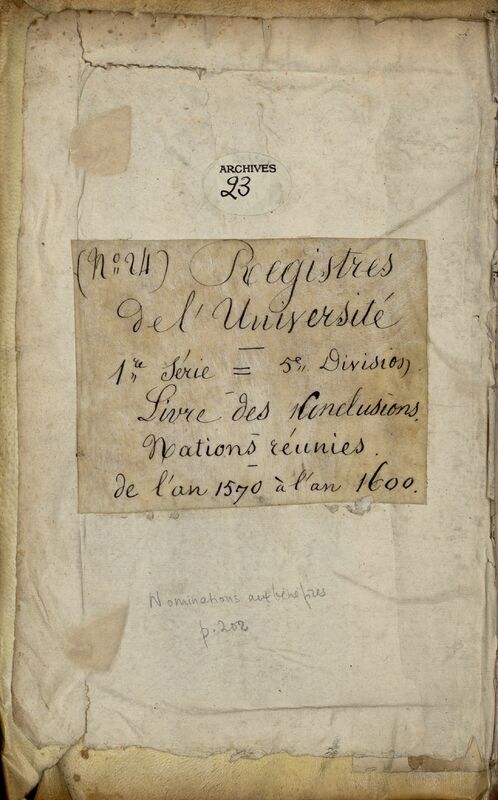 ARCHIVES
23
(Nº 24) Registres
de l'Université
1re Série = 5e Division
Livre des Conclusions.
Nations réunies.
de l'an 1570 à l'an 1600.
Nominations aux bénéfices
p. 202